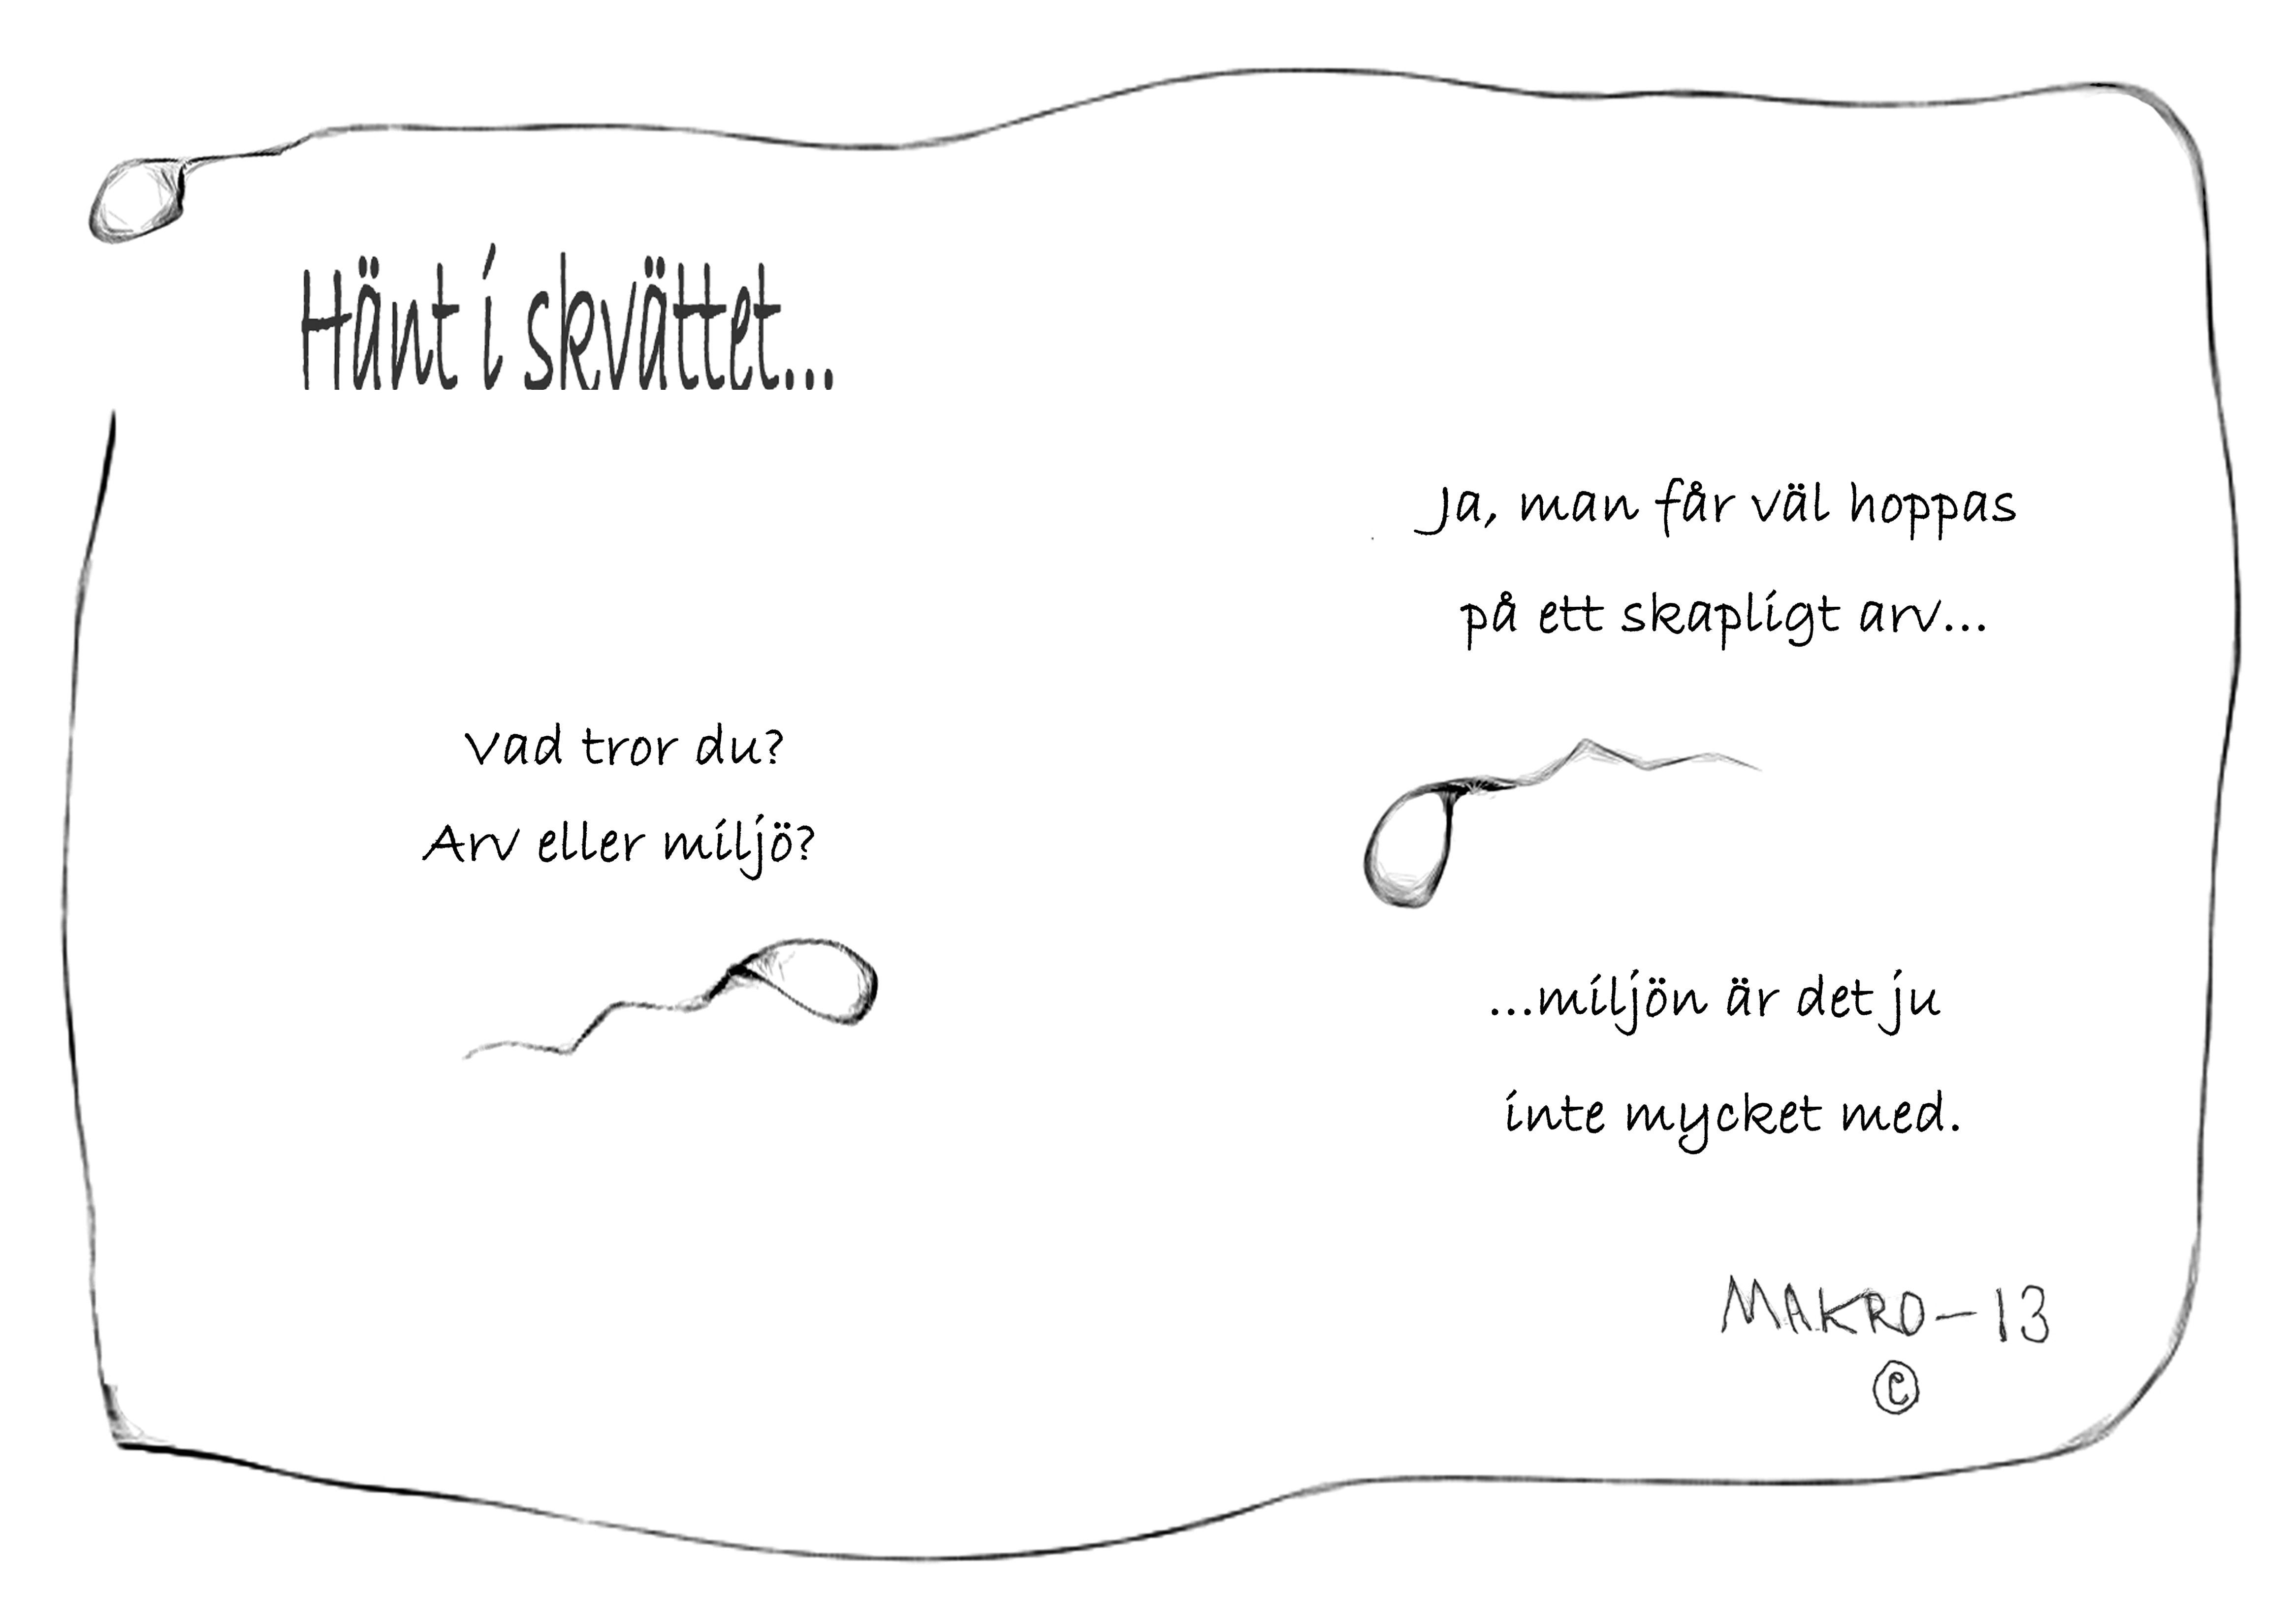 Hänt i skvättet...
Vad tror du?
Arv eller miljö?
Ja, man får väl hoppas
på ett skapligt arv...
...miljön är det ju
inte mycket med.
MAKRO-13
©